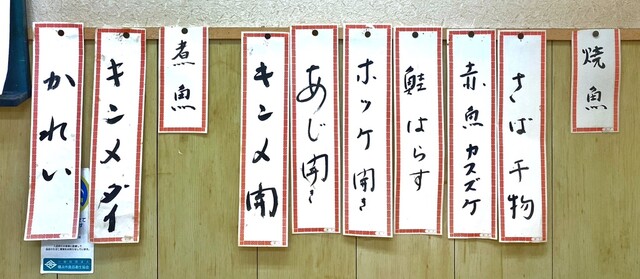 焼魚
さば干物
赤魚カスズケ
鮭はらす
ホッケ開き
あじ開き
キンメ開
煮魚
キンメダイ
かれい